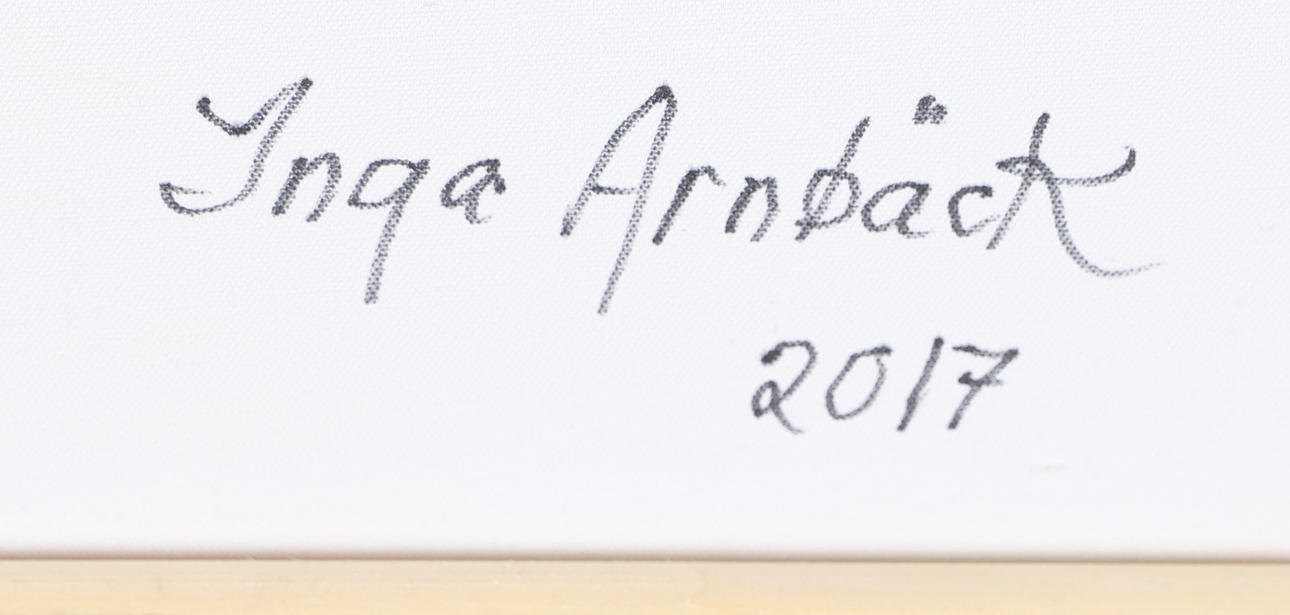 Inga Arnbäck
2017